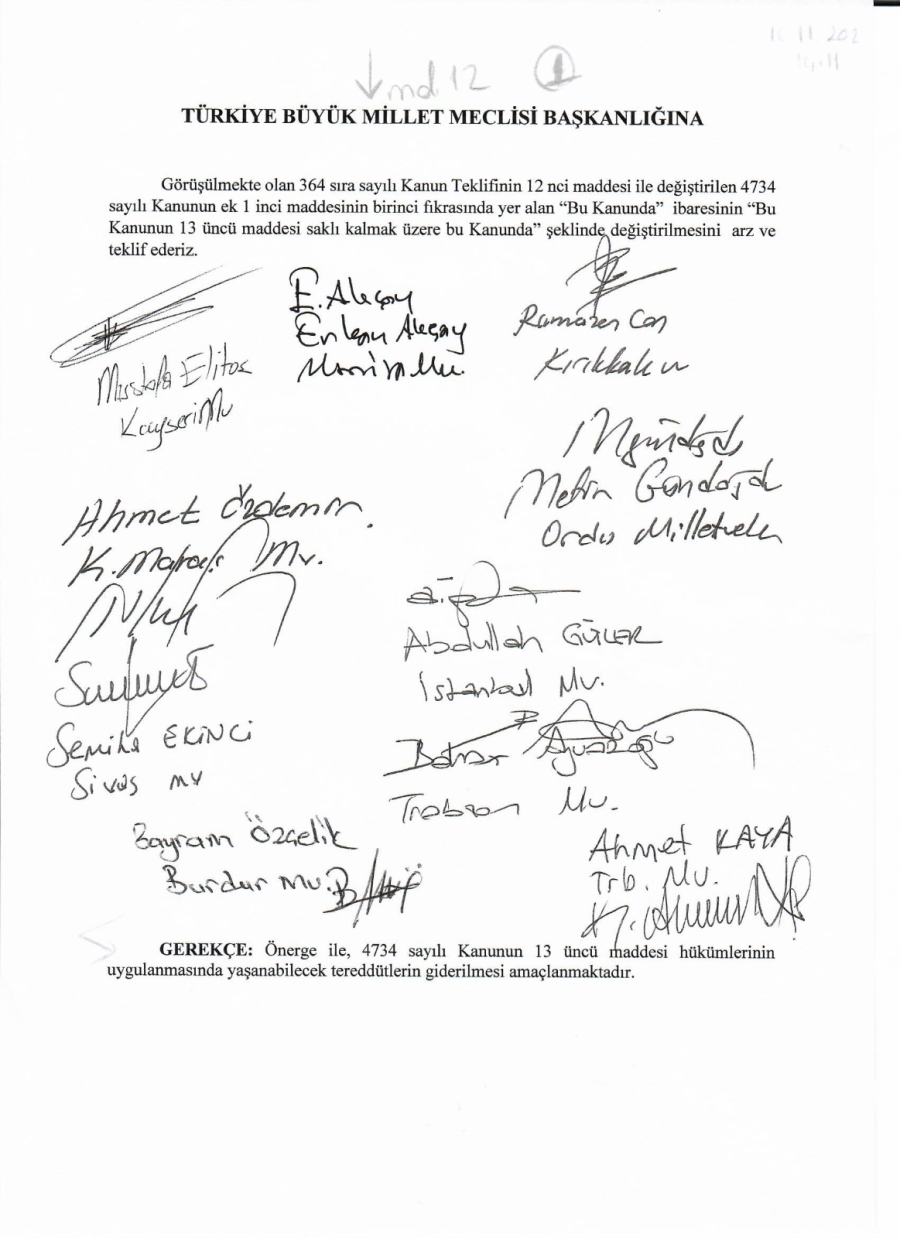 md 12 1
TÜRKİYE BÜYÜK MİLLET MECLİSİ BAŞKANLIĞINA
Görüşülmekte olan 364 sıra sayılı Kanun Teklifinin 12 nci maddesi ile değiştirilen 4734
sayılı Kanunun ek 1 inci maddesinin birinci fıkrasında yer alan “Bu Kanunda” ibaresinin “Bu
Kanunun 13 üncü maddesi saklı kalmak üzere bu Kanunda” şeklinde değiştirilmesini arz ve
teklif ederiz.
Mustafa Elitaş
Kayseri Mv
E. Akçay
Erkan Akçay
Manisa Mv.
Ramazan Can
Kırıkkale
Metin Gündoğdu
Ordu Milletvek
Ahmet Özdemir
K. Maraş Mv.
Abdullah GÜLER
İstanbul Mv.
Semiha EKİNCİ
Sivas mv
Bahar Ayvazoğlu
Trabzon Mv.
Bayram Özçelik
Burdur mv.
Ahmet KAYA
Trb. Mv.
GEREKÇE: Önerge ile, 4734 sayılı Kanunun 13 üncü maddesi hükümlerinin
uygulanmasında yaşanabilecek tereddütlerin giderilmesi amaçlanmaktadır.